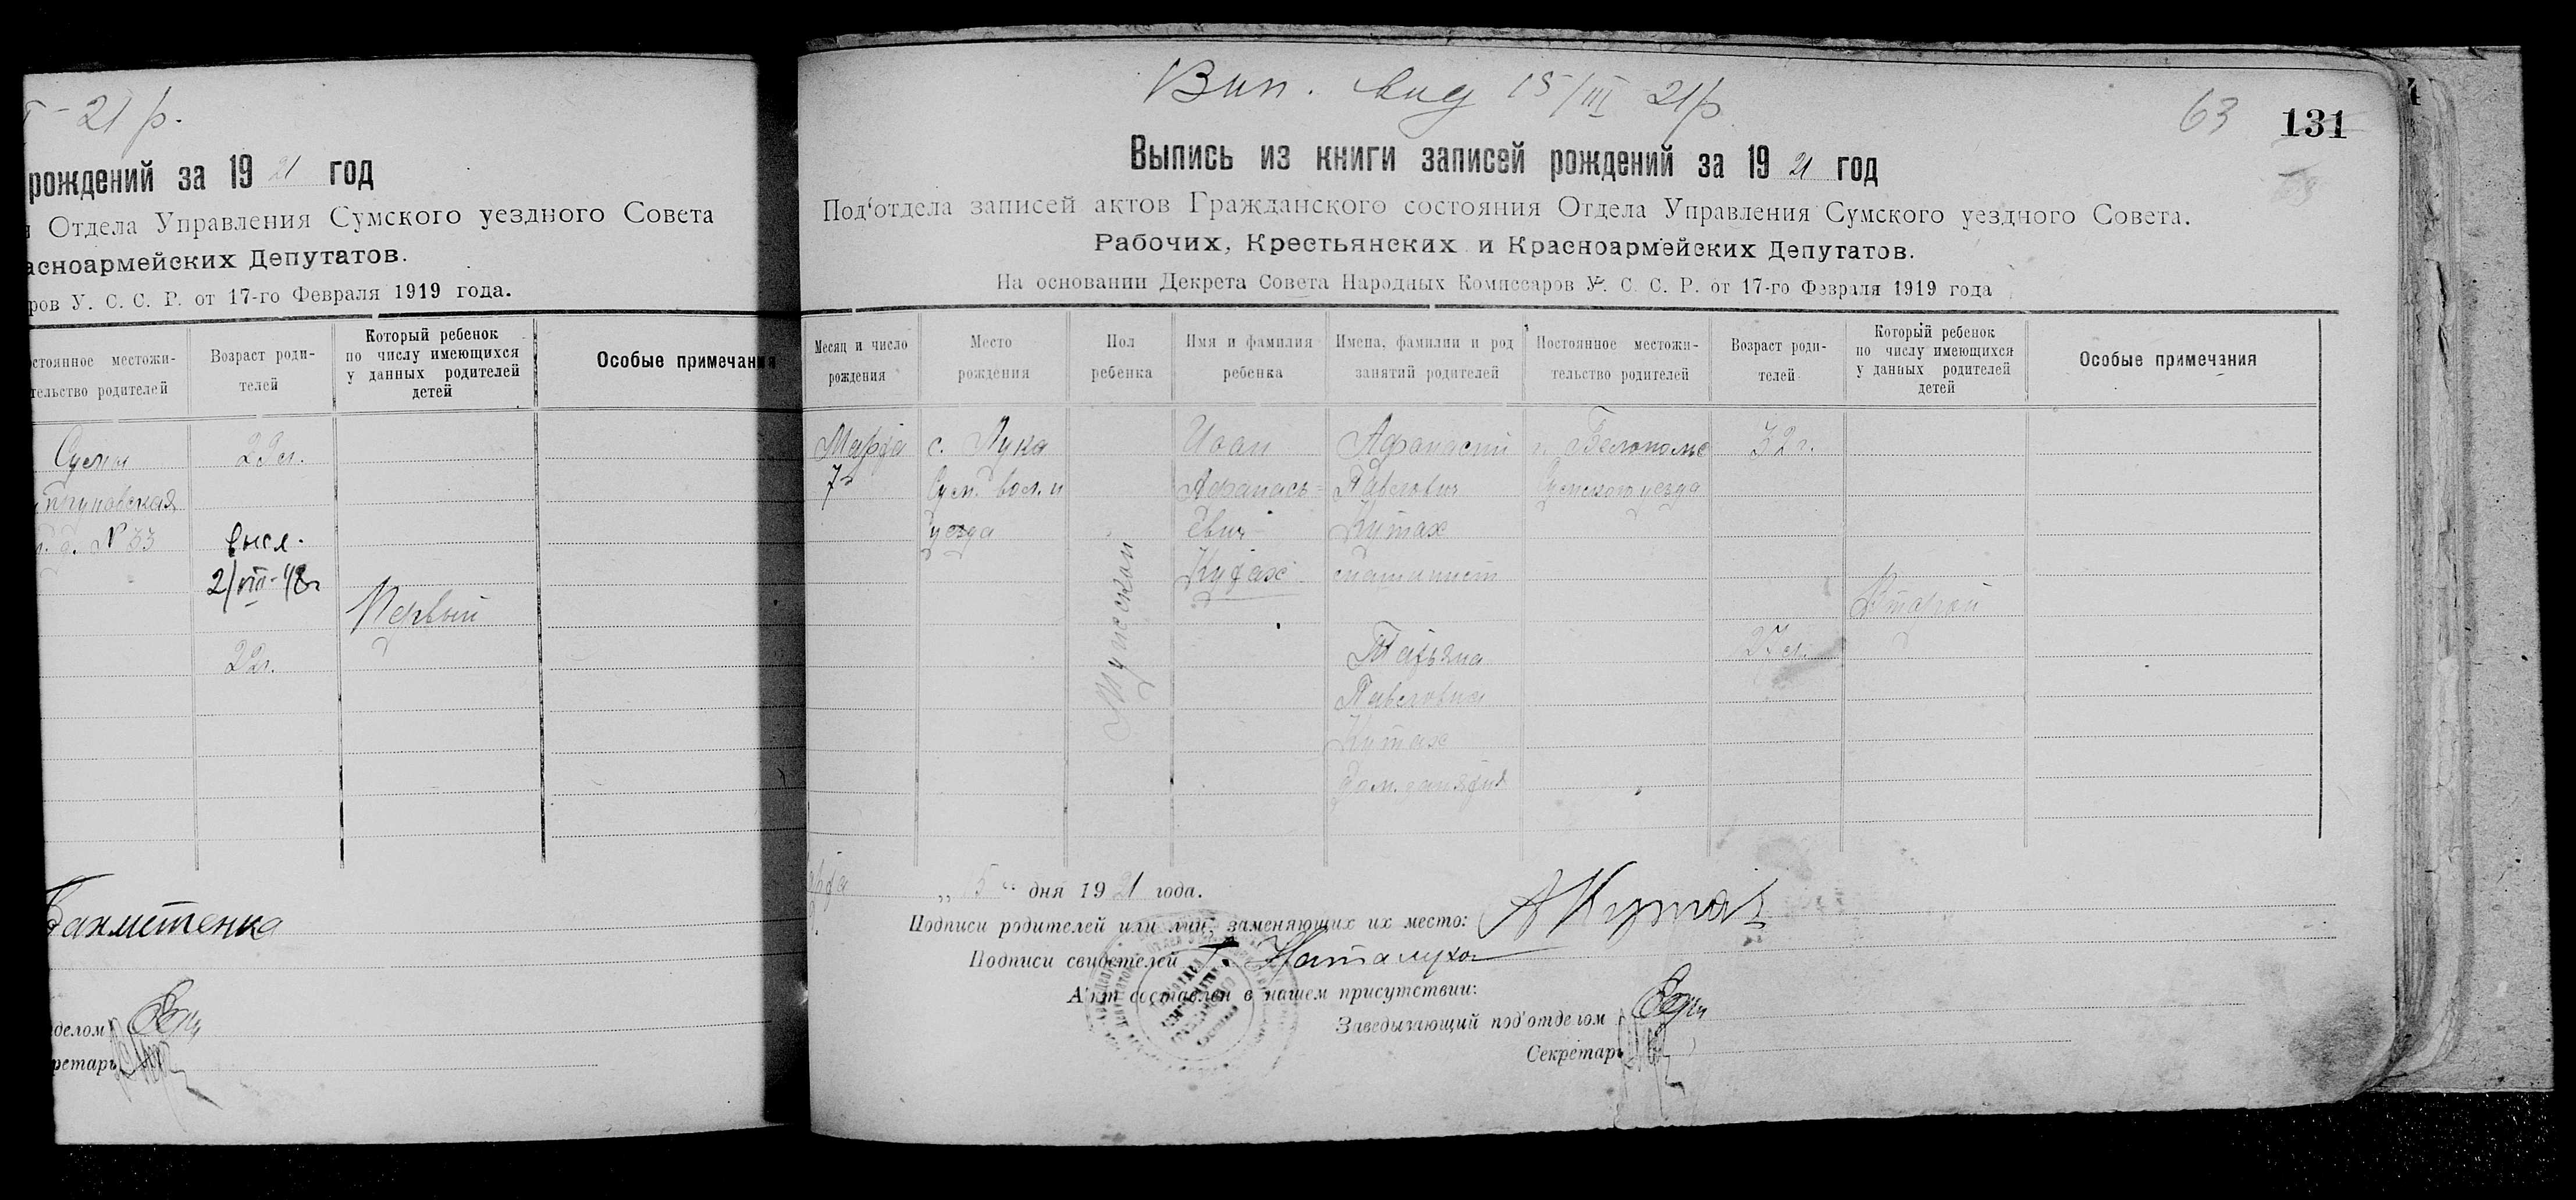 21 р.
рождений за 19 21 год
Отдела Управления Сумского уездного Совета
асноармейских Депутатов.
ров У. С. С. Р. от 17-го Февраля 1919 года.
остоянное местожи-
тельство родителей
Возраст роди-
телей
Который ребенок
по числу имеющихся
у данных родителей
детей
Особые примечания
Сумы
29 л.
№ 33
высл.
2/VIII-48г
Первый
22г.
делом
кретарь
Вип. вид 15/III 21р
63 131
Выпись из книги записей рождений за 19 21 год
Под'отдела записей актов Гражданского состояния Отдела Управления Сумского уездного Совета.
Рабочих, Крестьянских и Красноармейских Депутатов.
На основании Декрета Совета Народных Комиссаров У. С. С. Р. от 17-го Февраля 1919 года
Месяц и число
рождения
Место
рождения
Пол
ребенка
Имя и фамилия
ребенка
Имена, фамилии и род
занятий родителей
Постоянное местожи-
тельство родителей
Возраст роди-
телей
Который ребенок
по числу имеющихся
у данных родителей
детей
Особые примечания
Марта
7
с. Лука
Сум. вол. и
уезда
Мужской
Иоан
Афанась-
евич
Кутах
Афанасий
Павлович
Кутах
статист
Татьяна
Павловна
Кутах
дом. занятия
г. Белополье
Сумского уезда
32 г.
27 л.
Второй
арта „ 15 “ дня 19 21 года.
Подписи родителей или лиц, заменяющих их место: А Кутах
Подписи свидетелей Г. Наталуха
Акт составлен в нашем присутствии:
Заведывающий под'отделом
Секретарь